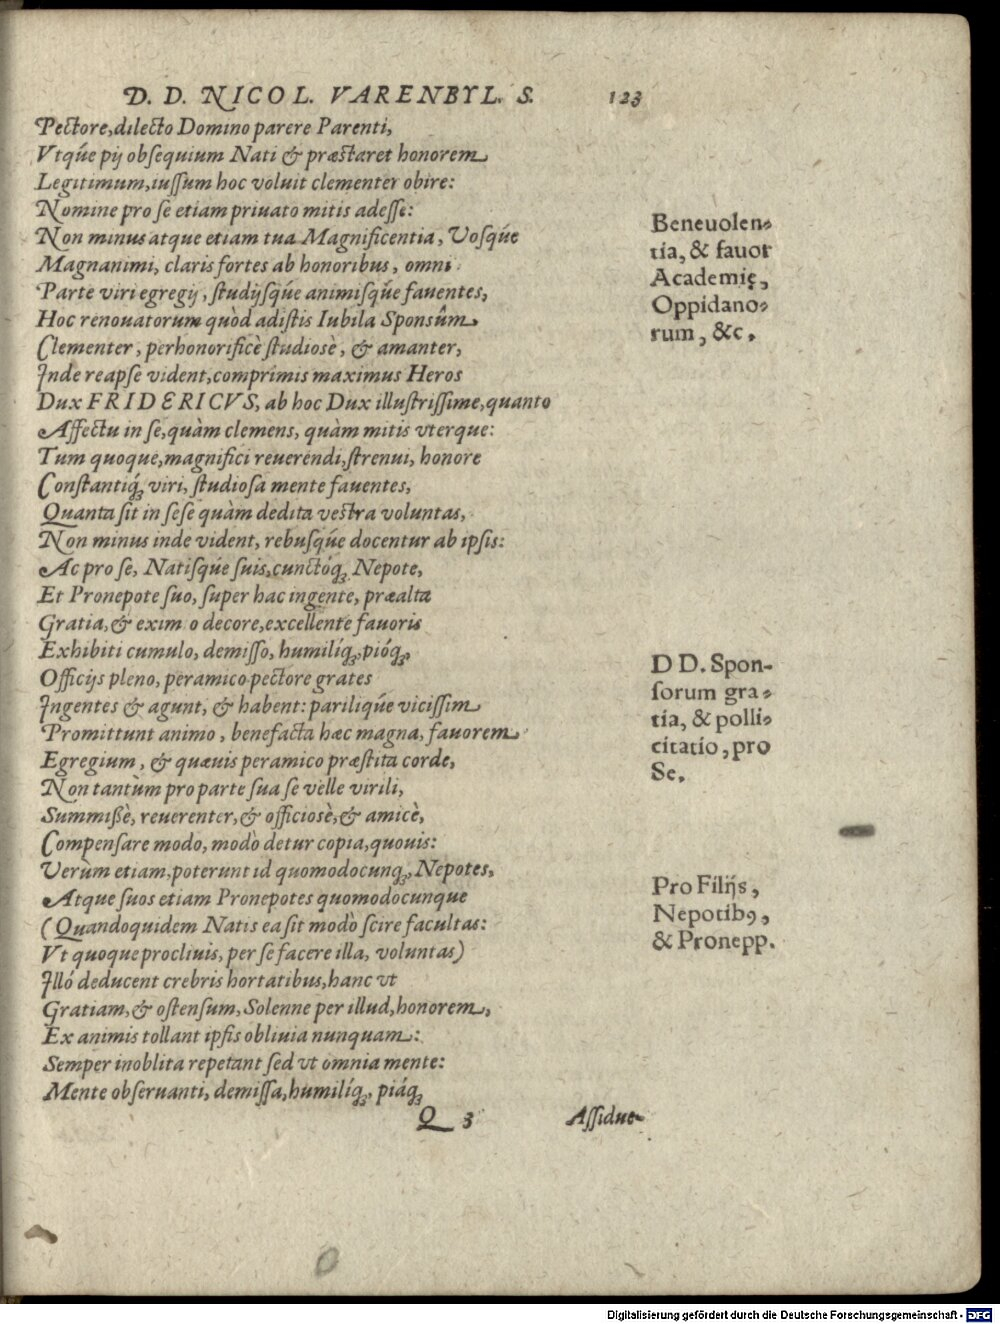 D. D. NICOL. VARENBYL. S. 123
Pectore, dilecto Domino parere Parenti,
Vtqúe pij obsequium Nati & præstaret honorem
Legitimum, iussum hoc voluit clementer obire:
Nomine pro se etiam priuato mitis adesse:
Non minus atque etiam tua Magnificentia, Vosqúe
Magnanimi, claris fortes ab honoribus, omni
Parte viri egregij, studijsqúe animisqúe fauentes,
Hoc renouatorum quòd adistis Iubila Sponsûm
Clementer, perhonorificè studiosè, & amanter,
Inde reapse vident, comprimis maximus Heros
Dux FRIDERICVS, ab hoc Dux illustrissime, quanto
Affectu in se, quàm clemens, quàm mitis vterque:
Tum quoque, magnifici reuerendi, strenui, honore
Constantiq́ꝫ viri, studiosa mente fauentes,
Quanta sit in sese quàm dedita vestra voluntas,
Non minus inde vident, rebusqúe docentur ab ipsis:
Ac pro se, Natisqúe suis, cunctóqꝫ Nepote,
Et Pronepote suo, super hac ingente, præalta
Gratia, & exim o decore, excellente fauoris
Exhibiti cumulo, demisso, humilíqꝫ, pióqꝫ,
Officijs pleno, peramico pectore grates
Ingentes & agunt, & habent: pariliqúe vicissim
Promittunt animo, benefacta hæc magna, fauorem
Egregium, & quæuis peramico præstita corde,
Non tantùm pro parte sua se velle virili,
Summißè, reuerenter, & officiosè, & amicè,
Compensare modo, modò detur copia, quouis:
Verùm etiam, poterunt id quomodocunqꝫ, Nepotes,
Atque suos etiam Pronepotes quomodocunque
(Quandoquidem Natis ea sit modò scire facultas:
Vt quoque procliuis, per se facere illa, voluntas)
Illó deducent crebris hortatibus, hanc vt
Gratiam, & ostensum, Solenne per illud, honorem,
Ex animis tollant ipsis obliuia nunquam:
Semper inoblita repetant sed vt omnia mente:
Mente obseruanti, demissa, humilíqꝫ, piáqꝫ
Q 3 Assidue
Beneuolen-
tia, & fauor
Academię,
Oppidano-
rum, &c.
D D. Spon-
sorum gra-
tia, & polli-
citatio, pro
Se.
Pro Filijs,
Nepotibꝰ,
& Pronepp.
Digitalisierung gefördert durch die Deutsche Forschungsgemeinschaft - DFG